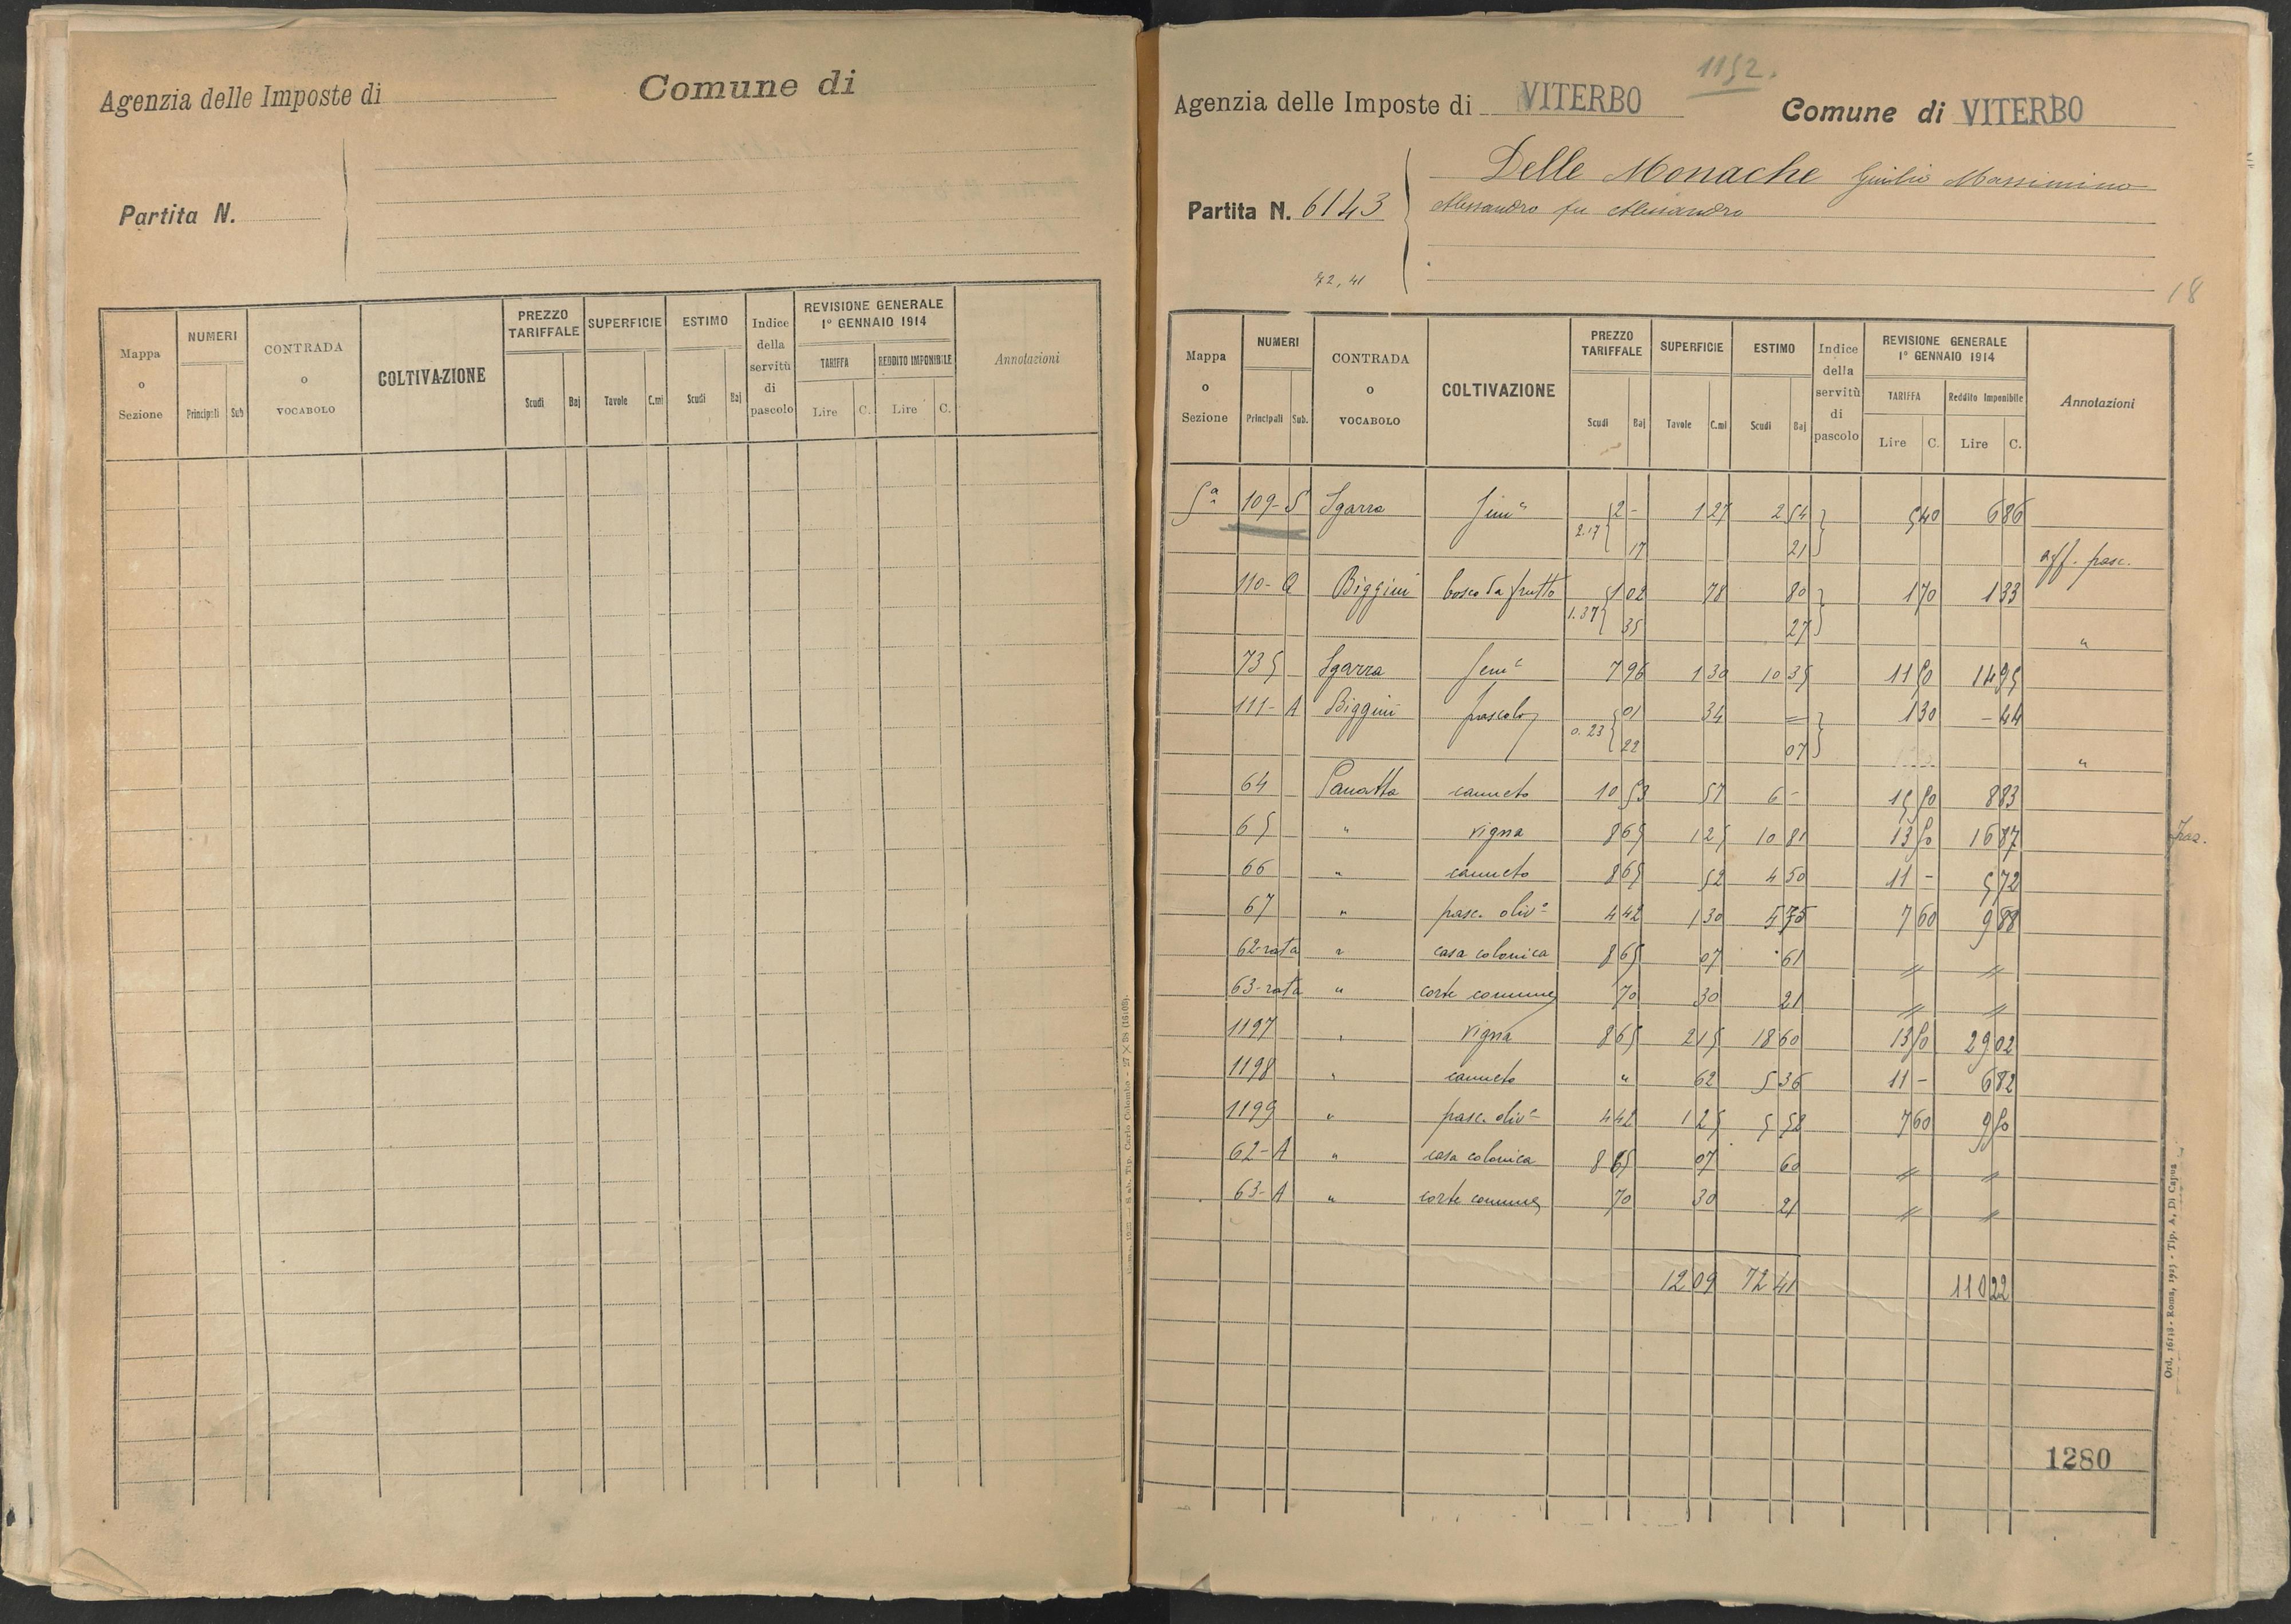 Agenzia delle Imposte di
Comune di
Partita N.
Mappa o Sezione
NUMERI
Principali Sub
CONTRADA o VOCABOLO
COLTIVAZIONE
PREZZO TARIFFALE
Scudi Baj
SUPERFICIE
Tavole C.mi
ESTIMO
Scudi Baj
Indice della servitù di pascolo
REVISIONE GENERALE 1° GENNAIO 1914
TARIFFA
Lire C.
REDDITO IMPONIBILE
Lire C.
Annotazioni
1152.
Agenzia delle Imposte di VITERBO
Comune di VITERBO
Partita N. 6143
Delle Monache Giulio Massimino
Alessandro fu Alessandro
72,41
18
Mappa o Sezione
NUMERI
Principali Sub.
CONTRADA o VOCABOLO
COLTIVAZIONE
PREZZO TARIFFALE
Scudi Baj
SUPERFICIE
Tavole C.mi
ESTIMO
Scudi Baj
Indice della servitù di pascolo
REVISIONE GENERALE 1° GENNAIO 1914
TARIFFA
Lire C.
Reddito Imponibile
Lire C.
Annotazioni
5ª 109-S Sgarra Semº 2 - 1 27 2 54 5 40 6 86
2.17 17 21 aff. pasc.
110-Q Biggini bosco da frutto 1 02 78 80 1 70 1 33
1.37 35 27 "
735 Sgarra Semº 7 96 1 30 10 35 11 50 14 95
111-A Biggini pascolo 01 34 = 1 30 - 44
0.23 22 07 "
64 Panatta canneto 10 53 57 6 - 15 50 8 83
65 " vigna 8 65 1 25 10 81 13 50 16 87
66 " canneto 8 65 52 4 50 11 - 5 72
67 " pasc. olivº 4 42 1 30 5 75 7 60 9 88
62-rata " casa colonica 8 65 07 61 = =
63-rata " corte comune 70 30 21 = =
1197 " vigna 8 65 2 15 18 60 13 50 29 02
1198 " canneto " 62 5 36 11 - 6 82
1199 " pasc. olivº 4 42 1 25 5 52 7 60 9 50
62-A " casa colonica 8 65 07 60 = =
63-A " corte comune 70 30 21 = =
12 09 72 41 110 22
1280
Ord. 16118 - Roma, 1923 - Tip. A. Di Capua